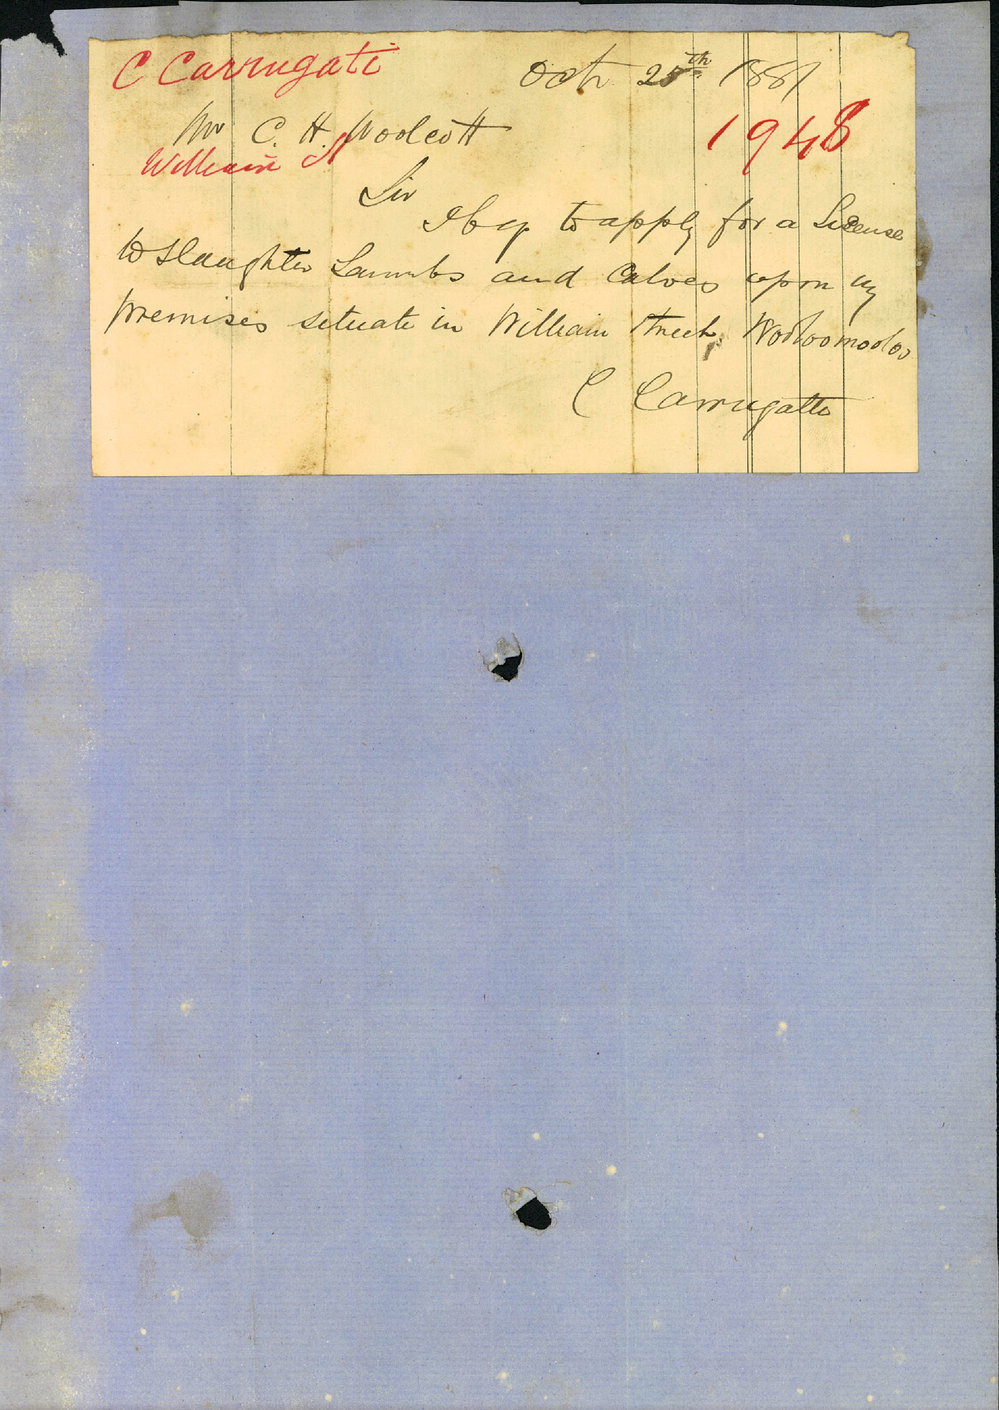 C Carrugati
Octr 25th 1881
1948
Mr C. H. Woolcott
William St
Sir
I beg to apply for a License
to Slaughter Lambs and Calves upon my
Premises situate in William Street, Wooloomooloo
C Carrugatti